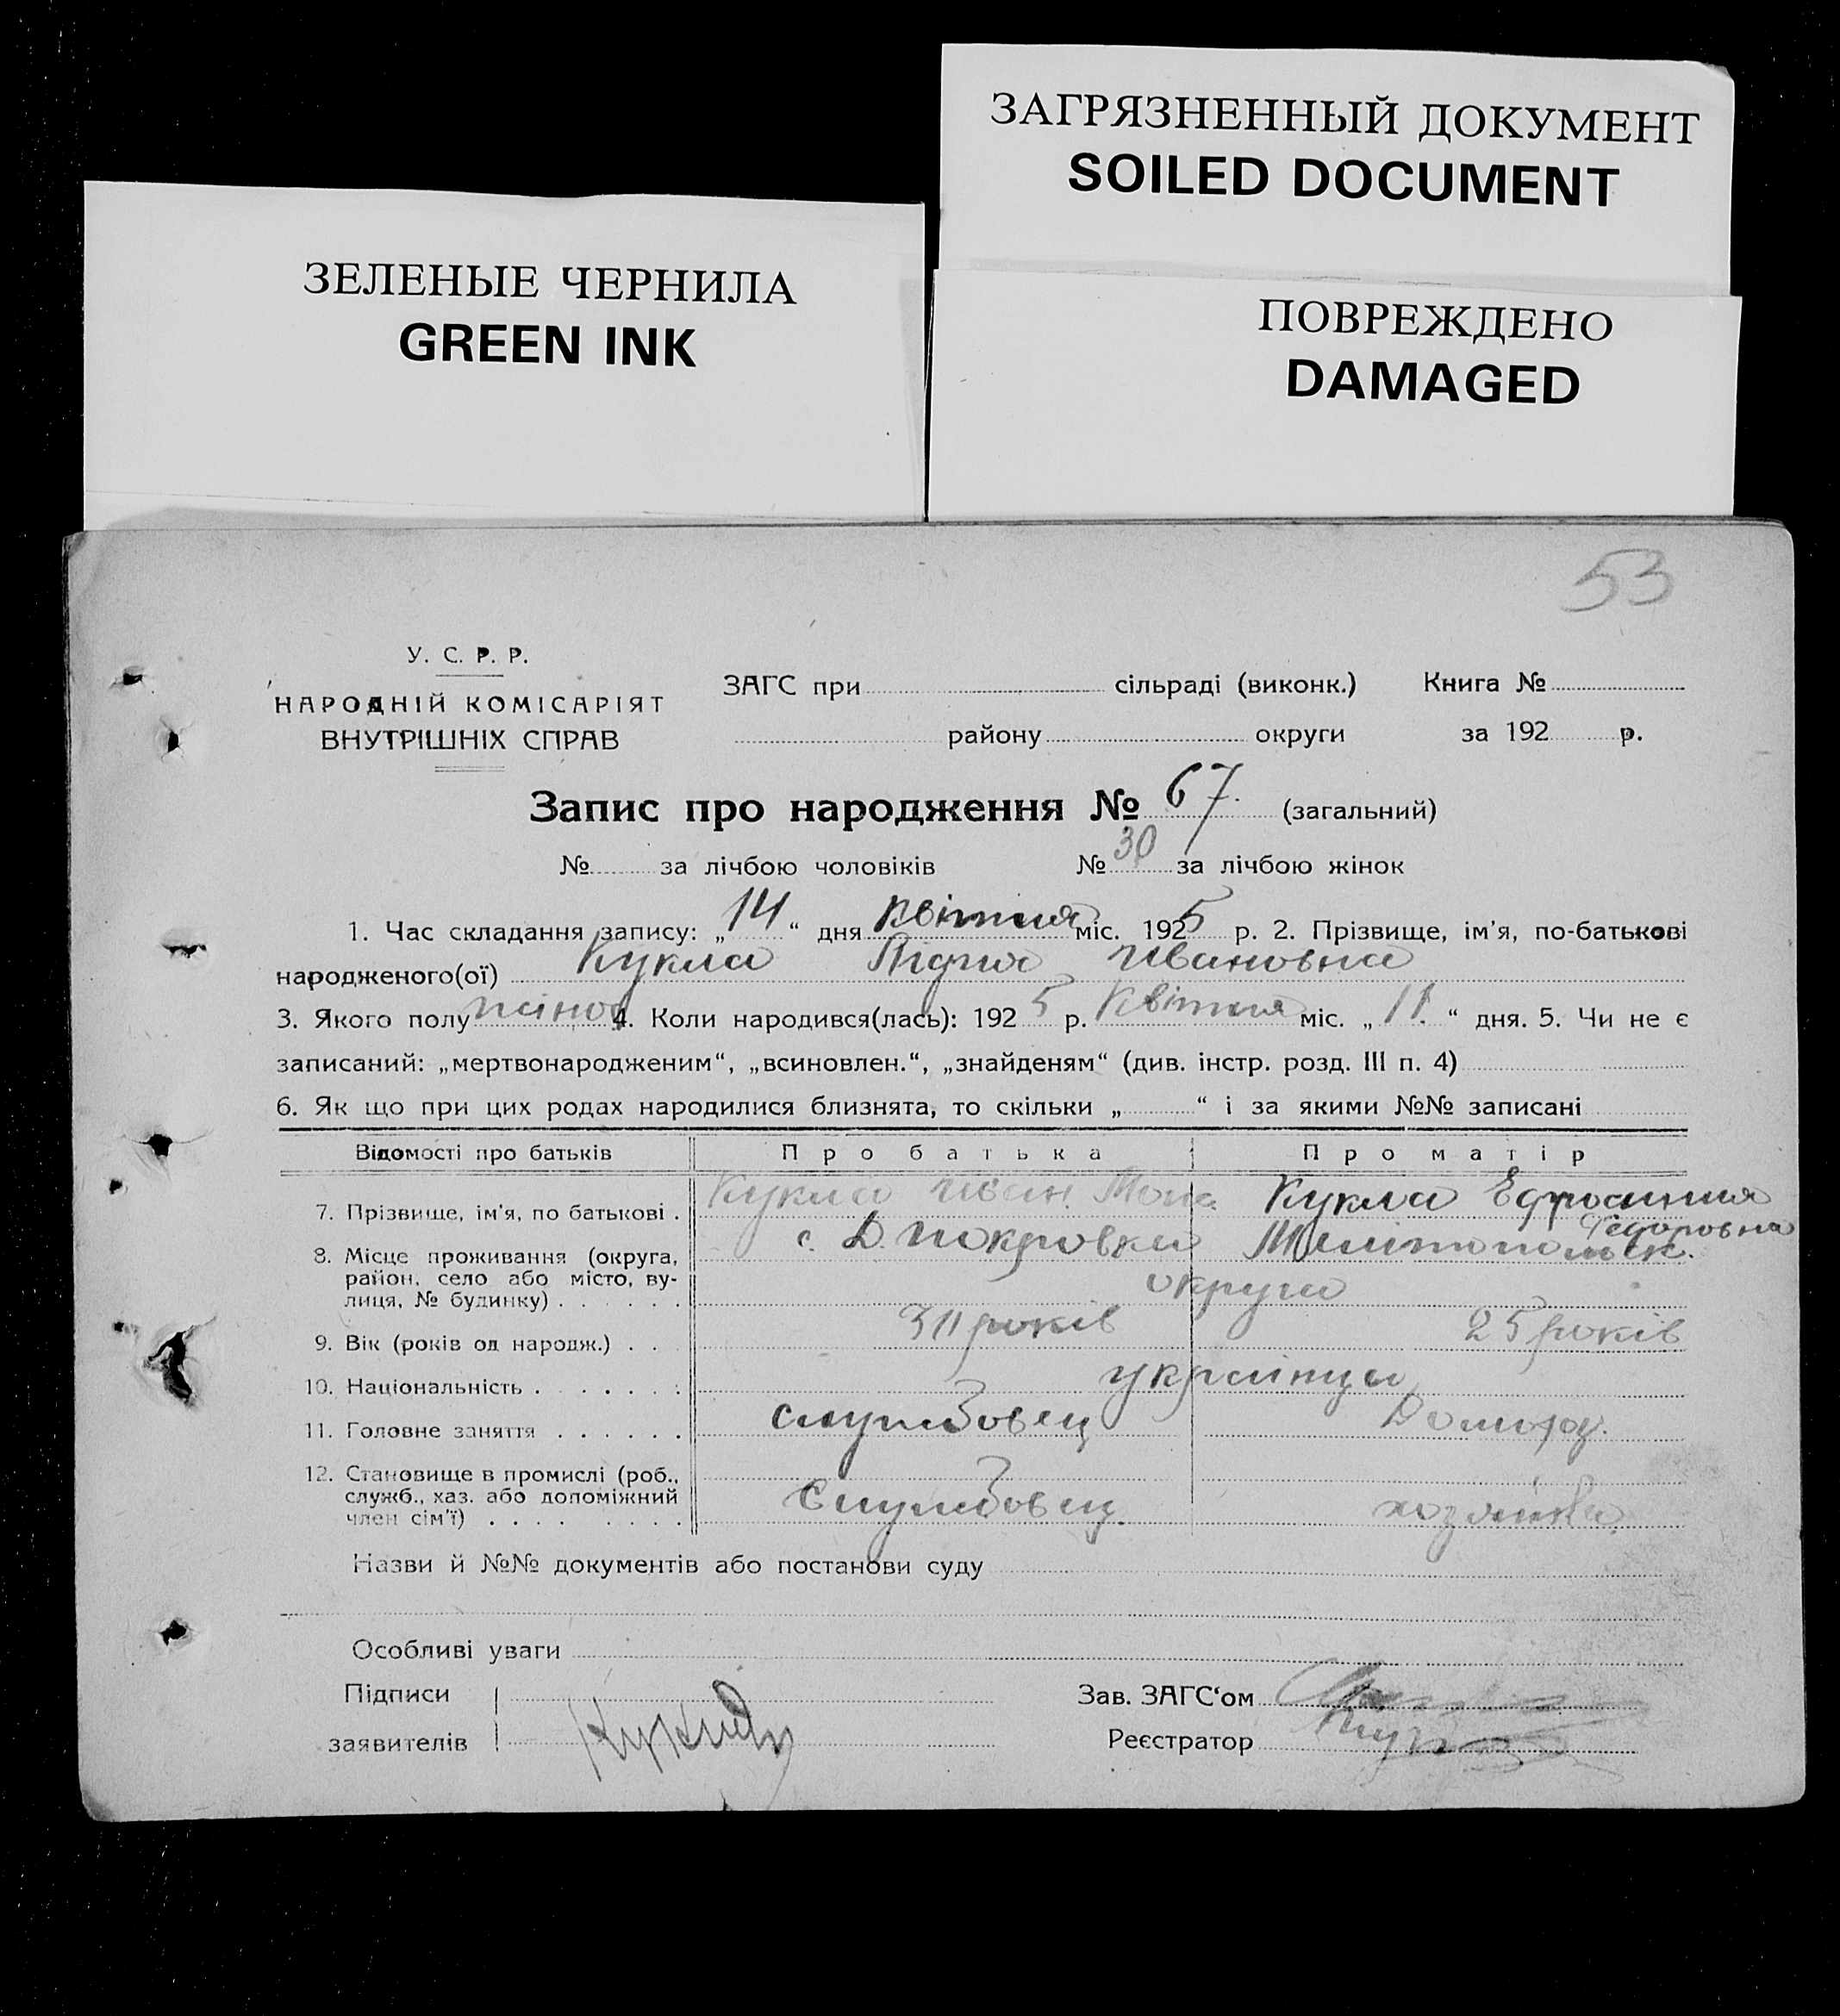 ЗАГРЯЗНЕННЫЙ ДОКУМЕНТ
SOILED DOCUMENT
ЗЕЛЕНЫЕ ЧЕРНИЛА
GREEN INK
ПОВРЕЖДЕНО
DAMAGED
53
У. С. Р. Р.
НАРОДНІЙ КОМІСАРІЯТ
ВНУТРІШНІХ СПРАВ
ЗАГС при сільраді (виконк.) Книга №
району округи за 192 р.
Запис про народження № 67. (загальний)
№ за лічбою чоловіків № 30 за лічбою жінок
1. Час складання запису: „14“ дня Квітня міс. 1925 р. 2. Прізвище, ім'я, по-батькові
народженого(ої) Кукла Лідия Ивановна
3. Якого полу жіноч 4. Коли народився(лась): 1925 р. Квітня міс. „11“ дня. 5. Чи не є
записаний: „мертвонародженим“, „всиновлен.“, „знайденям“ (див. інстр. розд. III п. 4)
6. Як що при цих родах народилися близнята, то скільки „ “ і за якими №№ записані
Відомості про батьків Про батька Про матір
7. Прізвище, ім'я, по батькові . Кукла Иван Кукла Ефросиния
Федоровна
8. Місце проживання (округа,
район, село або місто, ву-
лиця, № будинку) . . . . . . с. Д. Покровка Мелітопольск.
округа
9. Вік (років од народж.) . . . років 25 років
10. Національність . . . . . . українци
11. Головне заняття . . . . . . службовец Домогоз.
12. Становище в промислі (роб.,
служб., хаз. або допоміжний
член сім'ї) . . . . . . . . Службовец. хозяйка
Назви й №№ документів або постанови суду
Особливі уваги
Підписи
заявителів
Зав. ЗАГС‘ом
Реєстратор